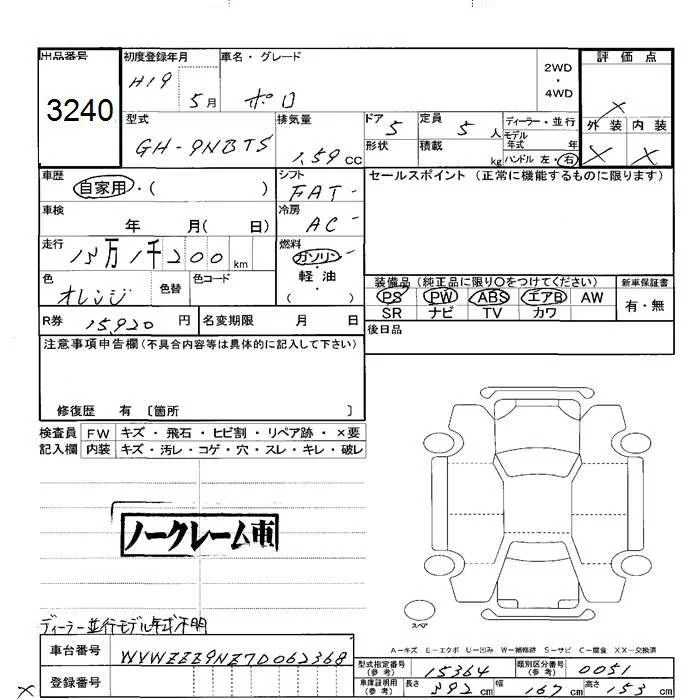 出品番号 初度登録年月 車名・グレード 2WD・4WD 評価点
3240 H19 5月 ポロ
外装 内装
型式 排気量 ドア 5 定員 5人 ディーラー・並行
GH-9NBTS 1.59cc 形状 積載 kg モデル年式 年
ハンドル 左・右
車歴 自家用・( ) シフト FAT セールスポイント (正常に機能するものに限ります)
車検 年 月( 日) 冷房 AC
走行 13万1千200km 燃料 ガソリン・軽油 ( )
色 オレンジ 色替 色コード
装備品 (純正品に限り〇をつけてください) 新車保証書
PS PW ABS エアB AW 有・無
SR ナビ TV カワ
R券 15,920円 名変期限 月 日 後日品
注意事項申告欄 (不具合内容等は具体的に記入して下さい)
修復歴 有 〔箇所 〕
検査員 FW キズ・飛石・ヒビ割・リペア跡・×要
記入欄 内装 キズ・汚レ・コゲ・穴・スレ・キレ・破レ
ノークレーム車
スペア
ディーラー並行モデル年式不明
A-キズ E-エクボ U-凹み W-補修跡 S-サビ C-腐食 XX-交換済
車台番号 WVWZZZ9NZ7D062368 型式指定番号 (参考) 15364 類別区分番号 (参考) 0051
登録番号 車庫証明用 (参考) 長さ 392cm 幅 167cm 高さ 153cm